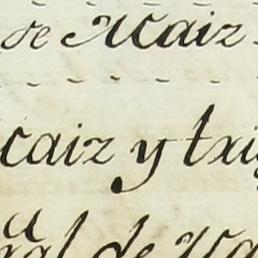 de Maiz
caiz y tri
al de Ma